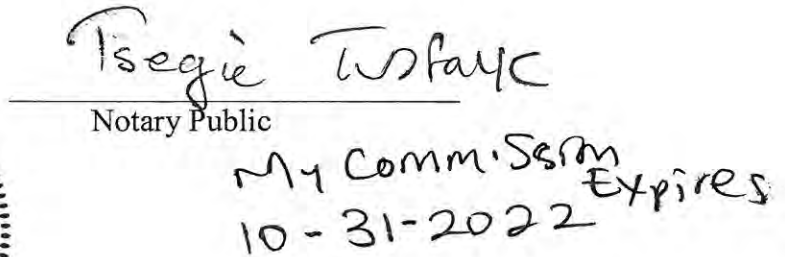 Tsegie Tusfaye
Notary Public
My Commission Expires
10-31-2022